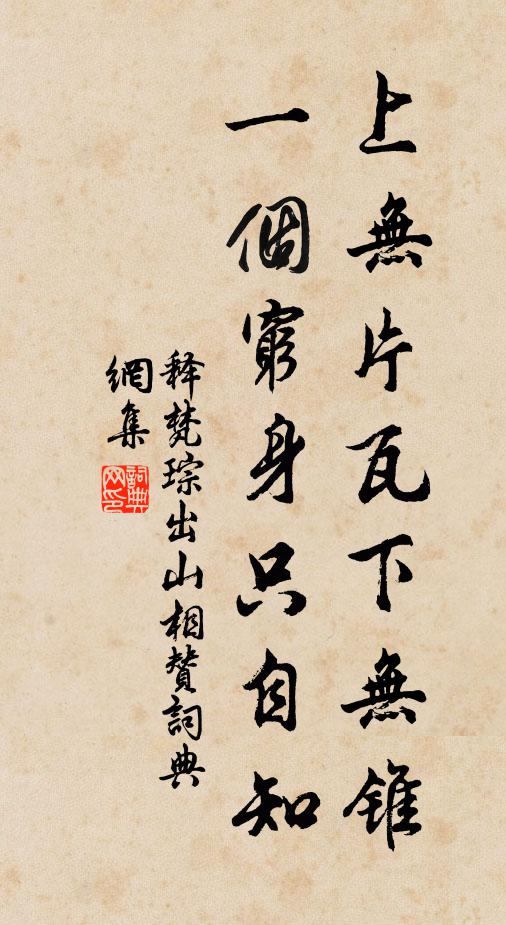 上無片瓦下無錐
一個窮身只自知
释梵琮出山相贊詞典
網集
詞典網印